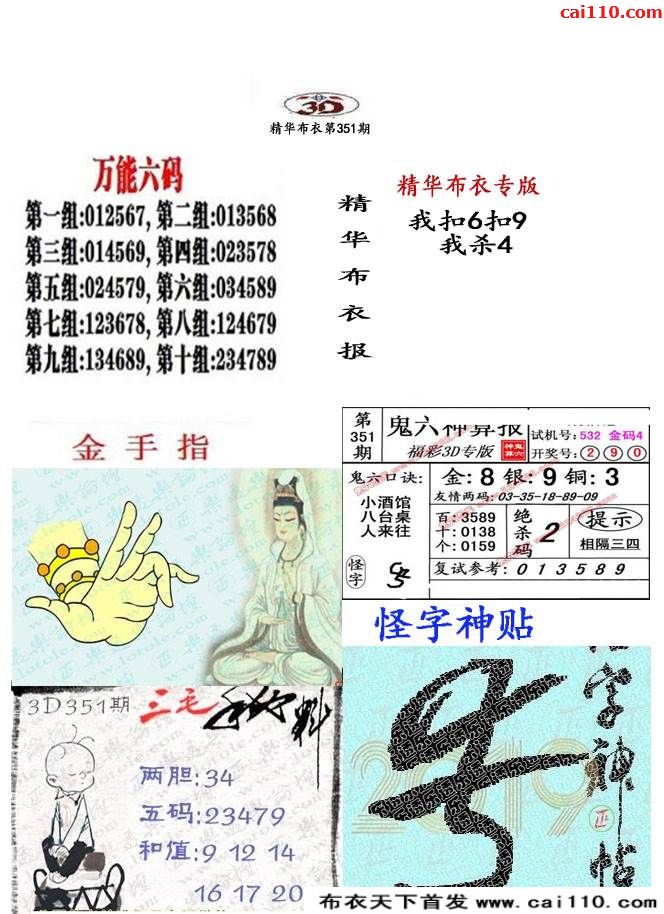 cai110.com
3D
精华布衣第351期
万能六码
第一组:012567, 第二组:013568
第三组:014569, 第四组:023578
第五组:024579, 第六组:034589
第七组:123678, 第八组:124679
第九组:134689, 第十组:234789
精华布衣报
精华布衣专版
我扣6扣9
我杀4
金手指
第351期
鬼六神算报
福彩3D专版
神鬼算六
试机号:532 金码4
开奖号:②⑨⓪
鬼六口诀:
小酒馆
八台桌
人来往
怪字
金:8 银:9 铜:3
友情两码:03-35-18-89-09
百:3589
十:0138
个:0159
绝杀码 2
提示
相隔三四
复试参考: 0 1 3 5 8 9
怪字神贴
3D351期 三毛
两胆:34
五码:23479
和值:9 12 14
16 17 20
怪字神帖
2019
布衣天下首发 www.cai110.com